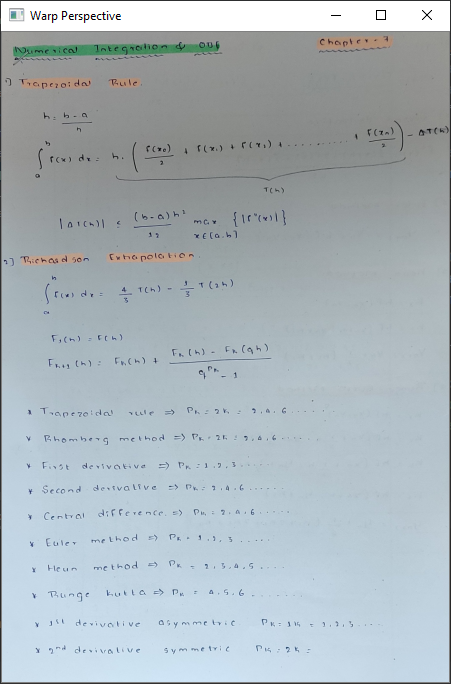 Warp Perspective
Numerical Integration & ODE Chapter - 7
1) Trapezoidal Rule.
h = b - a / n
∫_a^b f(x) dx = h · ( f(x₀)/2 + f(x₁) + f(x₂) + .......... + f(xₙ)/2 ) - ΔT(h)
T(h)
|ΔT(h)| ≤ (b-a)h²/12 max {|f''(x)|}
x∈[a,b]
2) Richardson Extrapolation.
∫_a^b f(x) dx = 4/3 T(h) - 1/3 T(2h)
F₁(h) = F(h)
Fₖ₊₁(h) = Fₖ(h) + Fₖ(h) - Fₖ(qh) / q^pₖ - 1
* Trapezoidal rule => Pₖ = 2k = 2,4,6 ......
* Rhomberg method => Pₖ = 2k = 2,4,6 ......
* First derivative => Pₖ = 1,2,3 .....
* Second derivative => Pₖ = 2,4,6 .....
* Central difference => Pₖ = 2,4,6 .....
* Euler method => Pₖ = 1,2,3 .....
* Heun method => Pₖ = 2,3,4,5 ....
* Runge kutta => Pₖ = 4,5,6 .......
* 1st derivative asymmetric Pₖ = 1k = 1,2,3 ....
* 2nd derivative symmetric Pₖ = 2k =